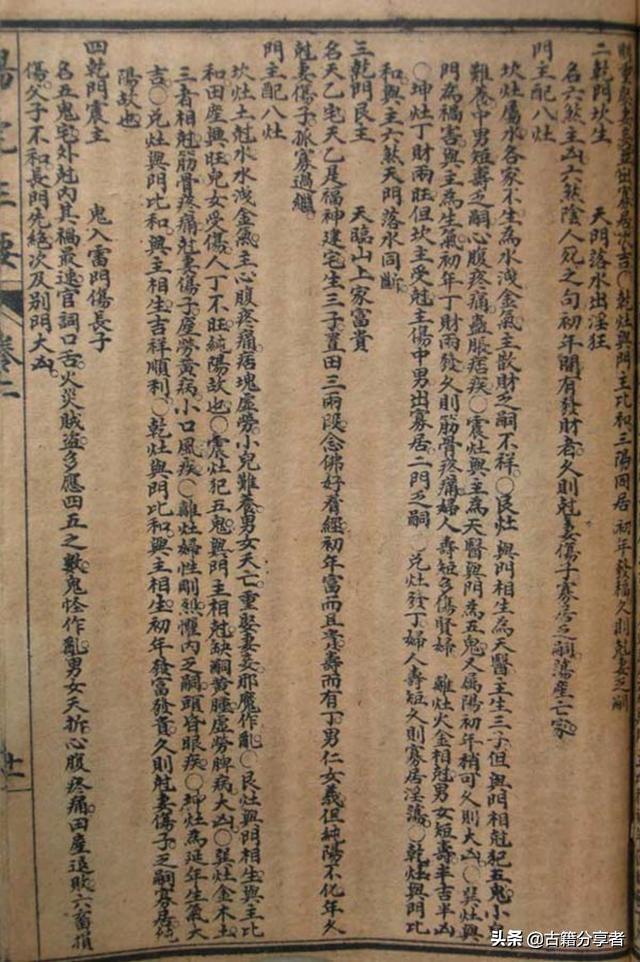 二乾門坎主　天門落水出淫狂
名六煞主凶六煞陰人死之句初年間有發財者久則尅妻傷子寡居乏嗣蕩產亡家
門主配八灶
坎灶屬水各家不生為水洩金氣主散財乏嗣不祥〇艮灶與門相生為天醫主生三子但與門相尅犯五鬼小兒
難養中男短壽乏嗣心腹疼痛蠱脹痞疾〇震灶與主為天醫與門為五鬼又屬陽初年稍可久則大凶〇巽灶與
門為禍害與主為生氣初年丁財兩發久則筋骨疼痛婦人壽短多傷賢婦　離灶火金相尅男女短壽半吉半凶
〇坤灶丁財兩旺但坎主受尅主傷中男出寡居二門乏嗣　兌灶發丁婦人壽短久則寡居淫蕩〇乾灶與門比
和與主六煞天門落水同斷
三乾門艮主　天臨山上家富貴
名天乙宅天乙是福神建宅生三子置田三兩段念佛好看經初年富而且貴壽而有丁男仁女義但純陽不化年久
尅妻傷子孤寡過繼
門主配八灶
坎灶土尅水水洩金氣主心腹疼痛痞塊虛勞小兒難養男女夭亡重娶妻妾邪魔作亂〇艮灶與門相生與主比
和田產興旺兒女受傷人丁不旺純陽故也〇震灶犯五鬼與門主相尅缺嗣黃腫虛勞脾病大凶〇巽灶金木土
三者相尅筋骨疼痛尅妻傷子產勞黃病小口風疾〇離灶婦性剛烈懼內乏嗣頭昏眼疾〇坤灶為延年生氣大
吉〇兌灶與門比和與主相生吉祥順利〇乾灶與門比和與主相生初年發富發貴久則尅妻傷子乏嗣寡居純
陽故也
四乾門震主　鬼入雷門傷長子
名五鬼宅外尅內其禍最速官詞口舌火災賊盜多應四五之數鬼怪作亂男女夭折心腹疼痛田產退敗六畜損
傷父子不和長門先絕次及別門大凶
陽宅三要
卷二
头条 @古籍分享者